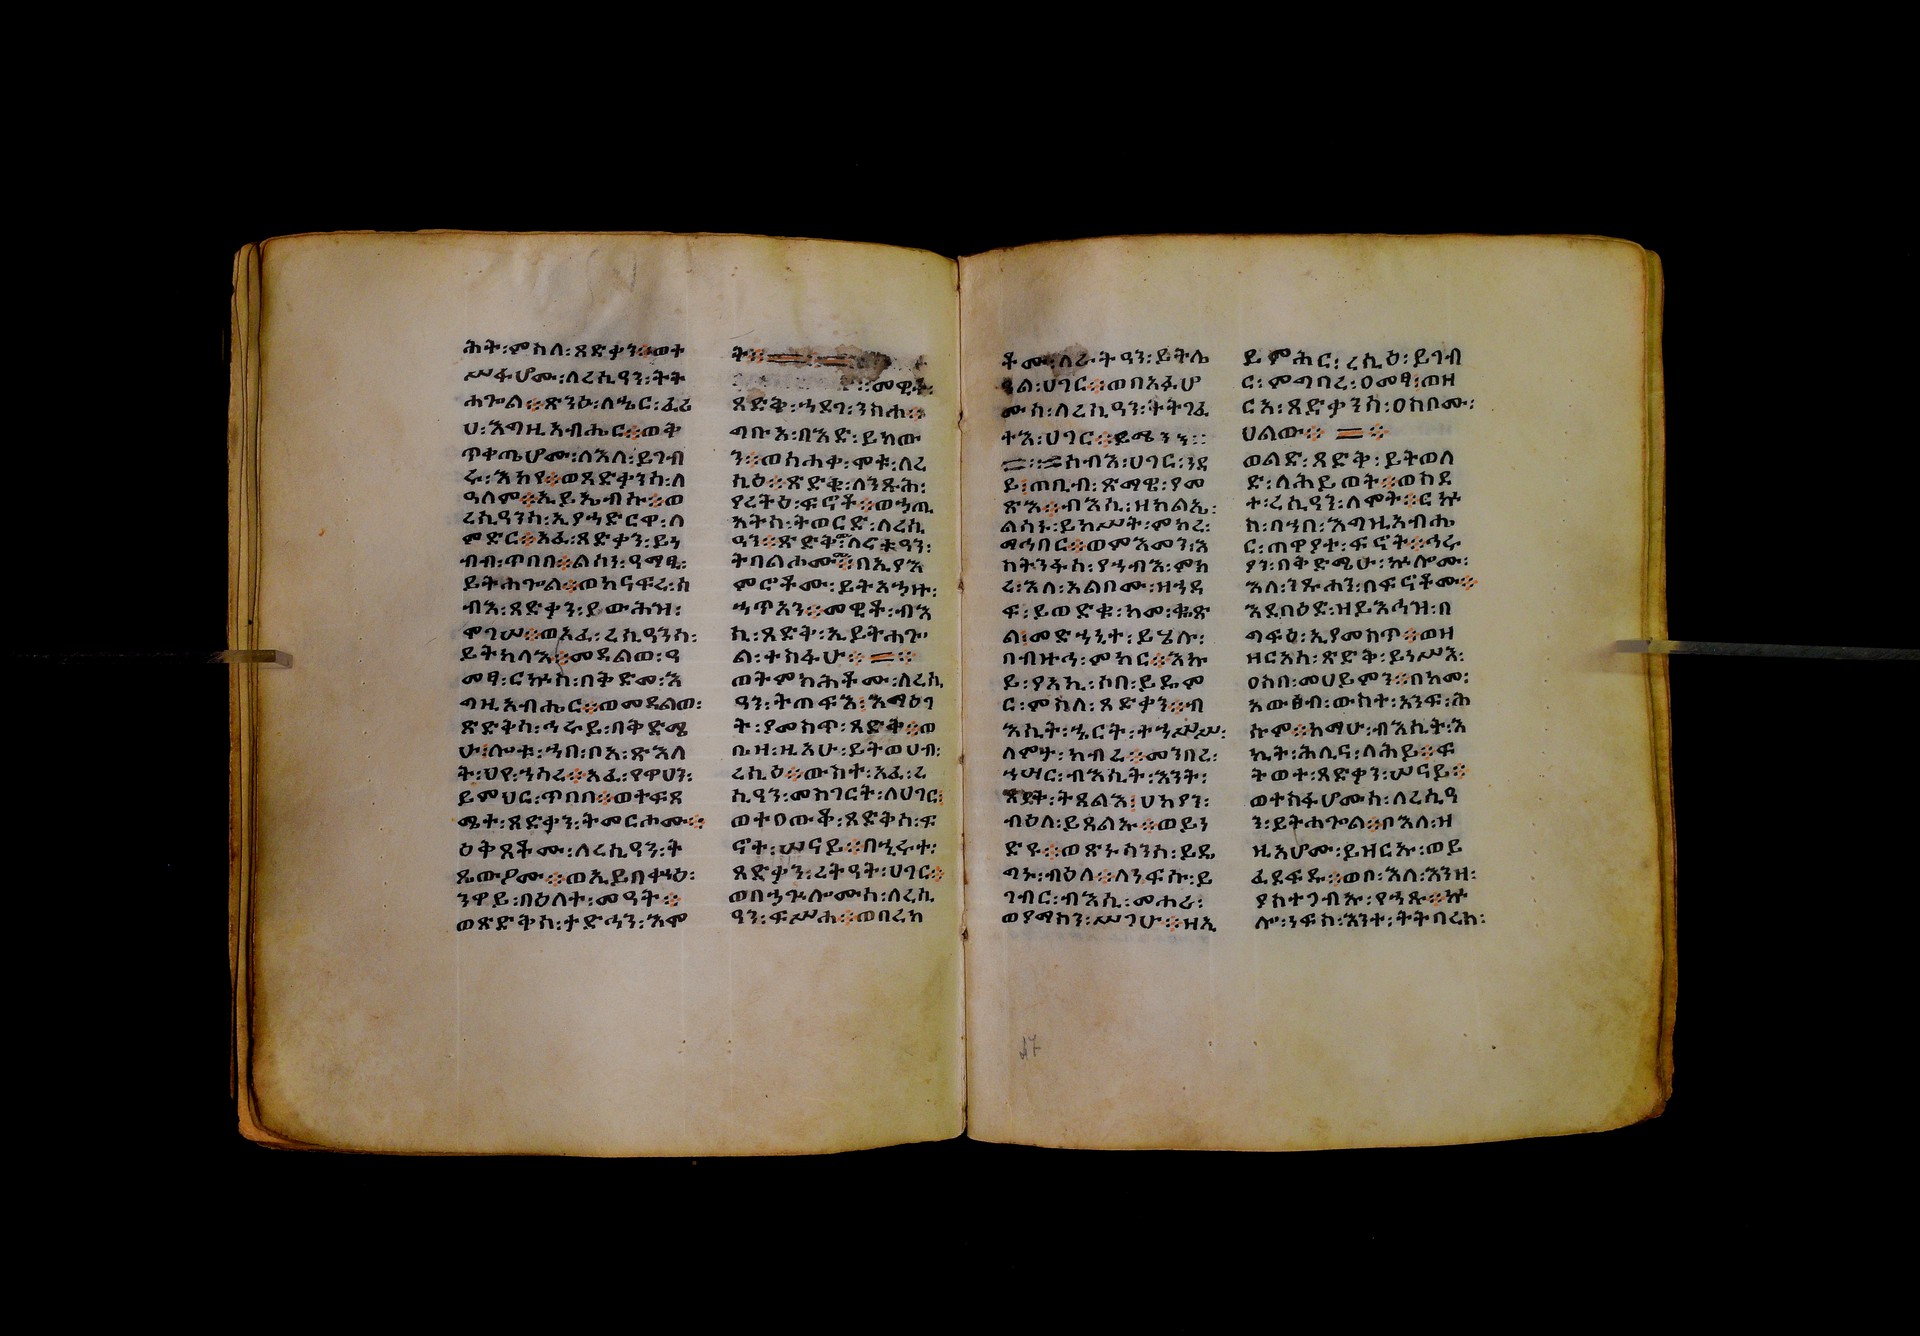 ሕት፡ምስለ፡ጻድቃን፨ወተ
ሥፋሆሙ፡ለረሲዓን፡ትት
ሐጐል፨ጽንዕ፡ለኄር፡ፈሪ
ሀ፡እግዚአብሔር፨ወቅ
ጥቀጤሆሙ፡ለእለ፡ይገብ
ሩ፡እከየ፨ወጻድቃንሰ፡ለ
ዓለም፨ኢይኤብሱ፨ወ
ረሲዓንሰ፡ኢያኀድርዋ፡ለ
ምድር፨አፈ፡ጻድቃን፡ይነ
ብብ፡ጥበበ፨ልሳን፡ዓማፂ፡
ይትሐጐል፨ወከናፍረ፡ሰ
ብእ፡ጻድቃን፡ይውሕዝ፡
ሞገሠ፨ወአፈ፡ረሲዓንሰ፡
ይትከላእ፨መዳልወ፡ዓ
መፃ፡ርኩስ፡በቅድመ፡እ
ግዚአብሔር፨ወመዳልወ፡
ጽድቅሰ፡ኅሩይ፡በቅድሜ
ሁ፡ሎቱ፡ኀበ፡ቦአ፡ጽእለ
ት፡ህየ፡ኀስረ፨አፈ፡የዋሀን፡
ይምህር፡ጥበበ፨ወተፍጻ
ሜት፡ጻድቃን፡ትመርሖሙ፨
ዕቅጸቶሙ፡ለረሲዓን፡ት
ጼውዎሙ፨ወኢይበቍዕ፡
ንዋይ፡በዕለተ፡መዓት፨
ወጽድቅሰ፡ታድኅን፡እሞ
ት፨
መዊቶ፡
ጻድቅ፡ኀደገ፡ንስሐ፨
ግቡእ፡በእድ፡ይከው
ን፨ወስሐቀ፡ሞቱ፡ለረ
ሲዕ፨ጽድቁ፡ለንጹሕ፡
ያረትዕ፡ፍኖቶ፨ወኃጢ
አትሰ፡ትወርድ፡ለረሲ
ዓን፨ጽድቅ፡ለሮቱዓን፡
ትበልሖሙ፨በኢያእ
ምሮቶሙ፡ይትአኀዙ፡
ኀጥአን፨መዊቶ፡ብእ
ሲ፡ጻድቅ፡ኢይትሐጐ
ል፡ተስፋሁ፨
ወትምክሕቶሙ፡ለረሲ
ዓን፡ትጠፍእ፡እማዕገ
ት፡ያመስጥ፡ጻድቅ፨ወ
በ፡ዝ፡ዚአሁ፡ይትወሀብ፡
ረሲዕ፨ውስተ፡አፈ፡ረ
ሲዓን፡መስገርት፡ለሀገር፡
ወተዐውቆ፡ጻድቅሰ፡ፍ
ኖት፡ሠናይ፨በኂሩተ፡
ጻድቃን፡ረትዓት፡ሀገር፨
ወበኃጐሎሙሰ፡ለረሲ
ዓን፡ፍሥሐ፨ወበረከ
ቶሙ፡ለራትዓን፡ይትሌ
ዓል፡ሀገር፨ወበአፉሆ
ሙሰ፡ለረሲዓን፡ትትገፈ
ታእ፡ሀገር፨ይሜንን፨
ሰብእ፡ሀገር፡ነዳ
ይ፡ጠቢብ፡ጽማዌ፡ያመ
ጽእ፨ብእሲ፡ዝክልኤ፡
ልሳኑ፡ይከሥት፡ምክረ፡
ማኅበር፨ወምእመን፡እ
ስትንፋስ፡ያኀብእ፡ምክ
ረ፡እለ፡አልቦሙ፡ዘኀዳ
ፍ፡ይወድቁ፡ከመ፡ቈጽ
ል፡መድኀኒት፡ይሄሉ፡
በብዙኅ፡ምክር፨እኩ
ይ፡ያአኪ፡ሶበ፡ይዴም
ር፡ምስለ፡ጻድቃን፨ብ
እሲት፡ኄርት፡ተኀሥሥ፡
ለምታ፡ክብረ፨መንበረ፡
ኀሣር፡ብእሲት፡እንተ፡
ጽድቀ፡ትጸልእ፡ሀከያን፡
ብዕለ፡ይጸልኡ፨ወይን
ድዩ፨ወጽኑዓንሰ፡ይዴ
ግኑ፡ብዕለ፨ለንፍሱ፡ይ
ገብር፡ብእሲ፡መሐሪ፡
ወያማስን፡ሥጋሁ፨ዘኢ
ይምሕር፡ረሲዕ፡ይገብ
ር፡ምግባረ፡ዐመፃ፡ወዘ
ርአ፡ጻድቃንሰ፡ዐስቦሙ፡
ሀልው፨
ወልድ፡ጻድቅ፡ይትወለ
ድ፡ለሕይወት፨ወስደ
ተ፡ረሲዓን፡ለሞት፨ርኩ
ስ፡በኀበ፡እግዚአብሔ
ር፡ጠዋያተ፡ፍኖት፨ኅሩ
ያን፡በቅድሜሁ፡ኵሎሙ፡
እለ፡ንጹሐን፡በፍኖቶሙ፨
እደበዕድ፡ዝይእኅዝ፡በ
ግፍዕ፡ኢያመስጥ፨ወዘ
ዘርአሰ፡ጽድቅ፡ይነሥእ፡
ዐስበ፡መሀይምን፨በከመ፡
አውፅብ፡ውስተ፡አንፍ፡ሕ
ሱም፨ከማሁ፡ብእሲት፡እ
ኪት፡ሕሊና፡ለሕይ፨ፍ
ትወተ፡ጻድቃን፡ሠናይ፨
ወተስፋሆሙሰ፡ለረሲዓ
ን፡ይትሐጐል፨ቦእለ፡ዝ
ዚአሆሙ፡ይዘርኡ፡ወይ
ፈደፍዱ፨ወቦ፡እለ፡እንዘ፡
ያስተጋብኡ፡የኀጹ፨ኵ
ሎ፡ነፍስ፡እንተ፡ትትባረክ፡
47